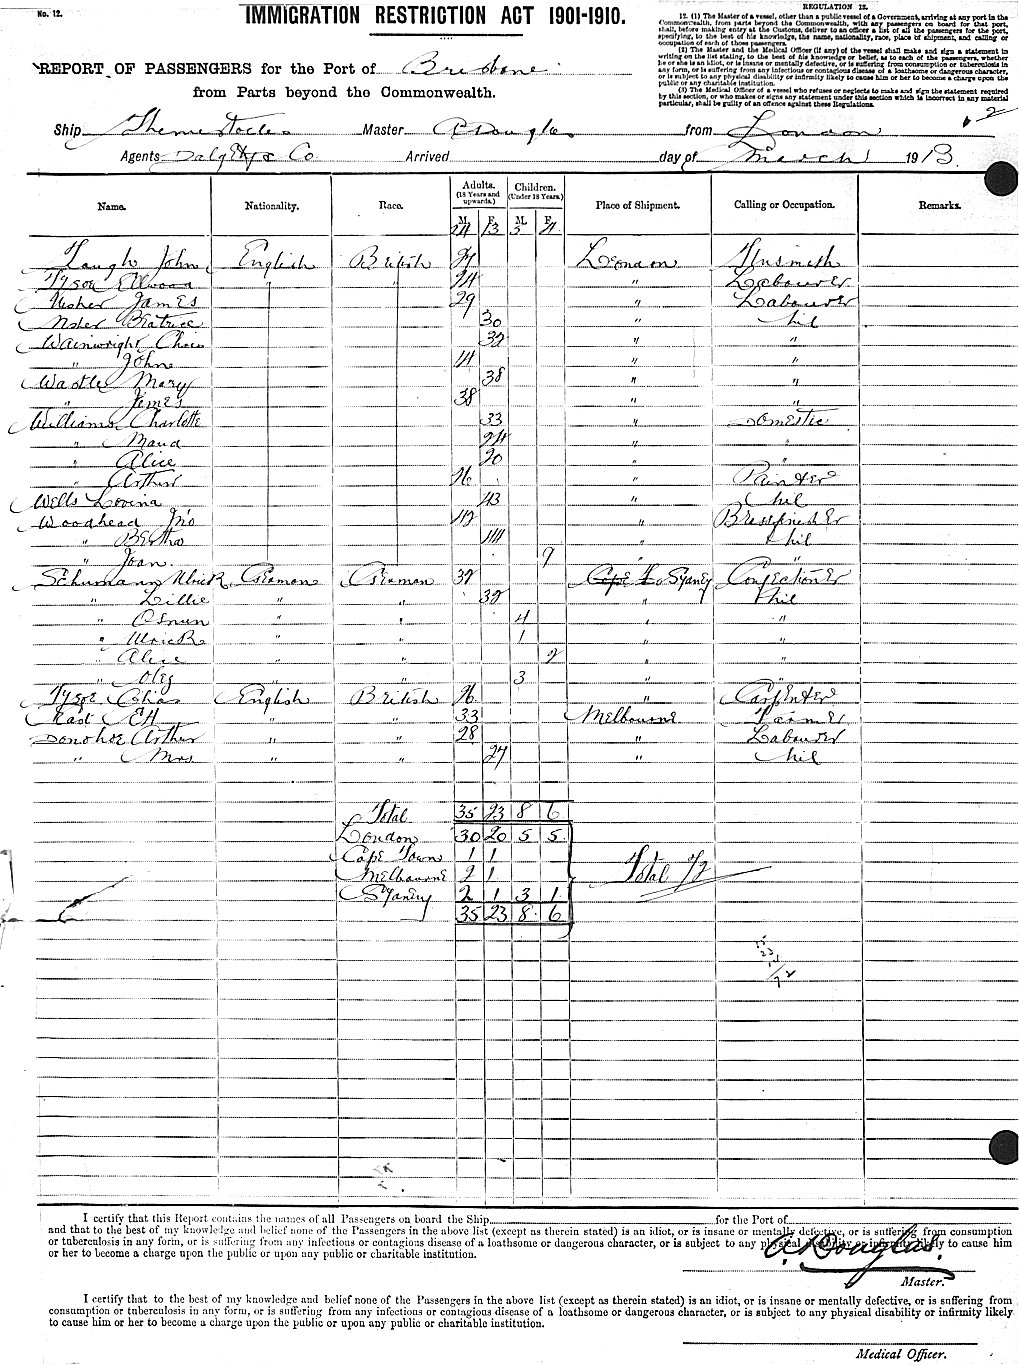 No. 12.
IMMIGRATION RESTRICTION ACT 1901-1910.
REGULATION 12.
12. (1) The Master of a vessel, other than a public vessel of a Government, arriving at any port in the
Commonwealth, from parts beyond the Commonwealth, with any passengers on board for that port,
shall, before making entry at the Customs, deliver to an officer a list of all the passengers for the port,
specifying, to the best of his knowledge, the name, nationality, race, place of shipment, and calling or
occupation of each of those passengers.
(2) The Master and the Medical Officer (if any) of the vessel shall make and sign a statement in
writing on the list stating, to the best of his knowledge or belief, as to each of the passengers, whether
he or she is an idiot, or is insane or mentally defective, or is suffering from consumption or tuberculosis in
any form, or is suffering from any infectious or contagious disease of a loathsome or dangerous character,
or is subject to any physical disability or infirmity likely to cause him or her to become a charge upon the
public or any charitable institution.
(3) The Medical Officer of a vessel who refuses or neglects to make and sign the statement required
by this section, or who makes or signs any statement under this section which is incorrect in any material
particular, shall be guilty of an offence against these Regulations.
REPORT OF PASSENGERS for the Port of Brisbane
from Parts beyond the Commonwealth.
Ship Themistocles Master A Douglas from London
Agents Dalgety & Co Arrived day of March 1913.
Name. Nationality. Race. Adults. (18 Years and upwards.) Children. (Under 18 Years.) Place of Shipment. Calling or Occupation. Remarks.
M. F. M. F.
24 13 5 4
Laugh John English British London Tinsmith
Tysoe Ellwood " " 24 " Labourer
Usher James 29 " Labourer
Usher Beatrice 30 " Nil
Wainwright Chris 32 " "
" John 14 " "
Wastle Mary 38 " "
" James 38 " "
Williams Charlotte 33 " Domestic
" Maud 24 " "
" Alice 20 " "
" Arthur 26 " Painter
Wells Lovina 43 " Nil
Woodhead Jno 42 " Brassfinisher
" Bertha 44 " Nil
" Joan. 9 " "
Schumann Ulrick German German 32 Cape T Sydney Confectioner
" Lillie " " 32 " Nil
" " " 4 " "
" Ulrick " " 1 " "
" Alice " " 2 " "
" Oleg " " 3 " "
Tysoe Chas English British 26 " Carpenter
East EH " " 33 Melbourne Farmer
Donohoe Arthur " " 28 " Labourer
" Mrs " " 27 " Nil
Total 35 23 8 6
London 30 20 5 5
Cape Town 1 1
Melbourne 2 1
Sydney 2 1 3 1
35 23 8 6
Total 72
35
23
14
72
I certify that this Report contains the names of all Passengers on board the Ship for the Port of
and that to the best of my knowledge and belief none of the Passengers in the above list (except as therein stated) is an idiot, or is insane or mentally defective, or is suffering from consumption
or tuberculosis in any form, or is suffering from any infectious or contagious disease of a loathsome or dangerous character, or is subject to any physical disability or infirmity likely to cause him
or her to become a charge upon the public or upon any public or charitable institution.
A. Douglas.
Master.
I certify that to the best of my knowledge and belief none of the Passengers in the above list (except as therein stated) is an idiot, or is insane or mentally defective, or is suffering from
consumption or tuberculosis in any form, or is suffering from any infectious or contagious disease of a loathsome or dangerous character, or is subject to any physical disability or infirmity likely
to cause him or her to become a charge upon the public or upon any public or charitable institution.
Medical Officer.